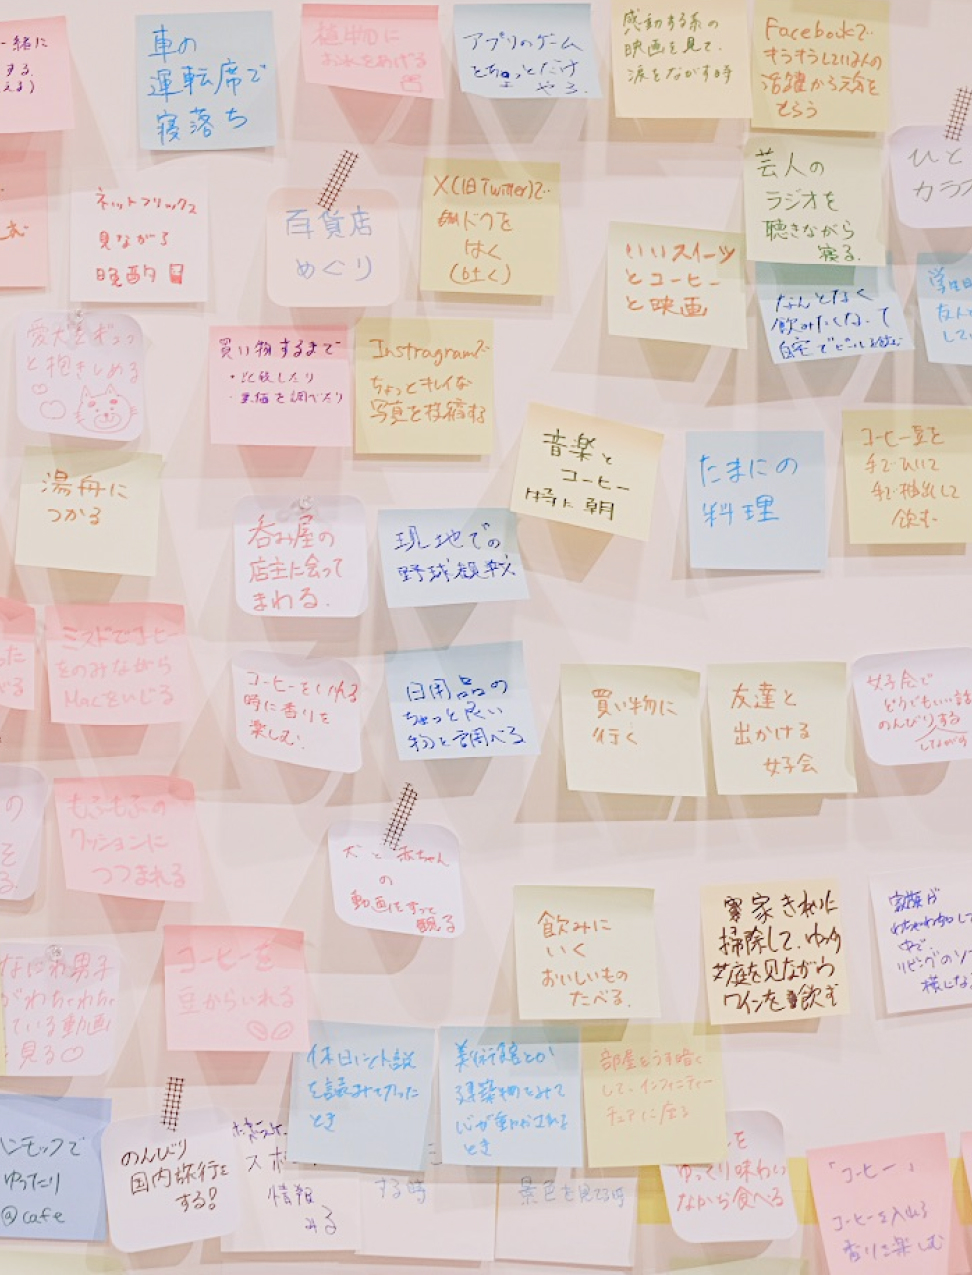 一緒に
する.
車の
運転席で
寝落ち
植物に
お水をあげる
アプリのゲーム
とちょっとだけ
やる.
感動する系の
映画を見て.
涙をながす時
Facebookで
キラキラしている人の
活躍から元気を
もらう
ネットフリックス
見ながら
晩酌
百貨店
めぐり
X(旧Twitter)で
毒ドクを
はく
(吐く)
いいスイーツ
とコーヒー
と映画
芸人の
ラジオを
聴きながら
寝る.
ひと
カラオ
なんとなく
飲みたくなって
自宅でビールを飲む
学生時
友人
して
愛犬をギュッ
と抱きしめる
買い物するまで
・比較したり
・単価を調べたり
Instragramで
ちょっとキレイな
写真を投稿する
音楽と
コーヒー
特に朝
たまにの
料理
コーヒー豆を
手でひいて
手で抽出して
飲む
湯舟に
つかる
呑み屋の
店主に会って
まわる.
現地での
野球観戦
ミスドでコーヒー
をのみながら
Macをいじる
コーヒーをいれる
時に香りを
楽しむ.
日用品の
ちょっと良い
物を調べる
買い物に
行く
友達と
出かける
女子会
女子会で
どうでもいい話を
のんびりする
しながら
もふもふの
クッションに
つつまれる
犬と赤ちゃん
の
動画をずっと
観る
飲みに
いく
おいしいもの
たべる.
家きれいに
掃除して、ゆっくり
芝庭を見ながら
ワインを飲む
家族が
わちゃわちゃして
中で、
リビングのソ
横にな
なにわ男子
がわちゃわちゃ
している動画
を見る♡
コーヒーを
豆からいれる
休日に小説
を読み切った
とき
美術館とか
建築物をみて
心が動かされる
とき
部屋をうす暗く
して、インフィニティー
チェアに座る
ハンモックで
ゆったり
@cafe
のんびり
国内旅行を
する?
スポ
情報
みる
する時
景色を見てる時
を
ゆっくり味わい
ながら食べる
「コーヒー」
コーヒーを入れる
香りを楽しむ